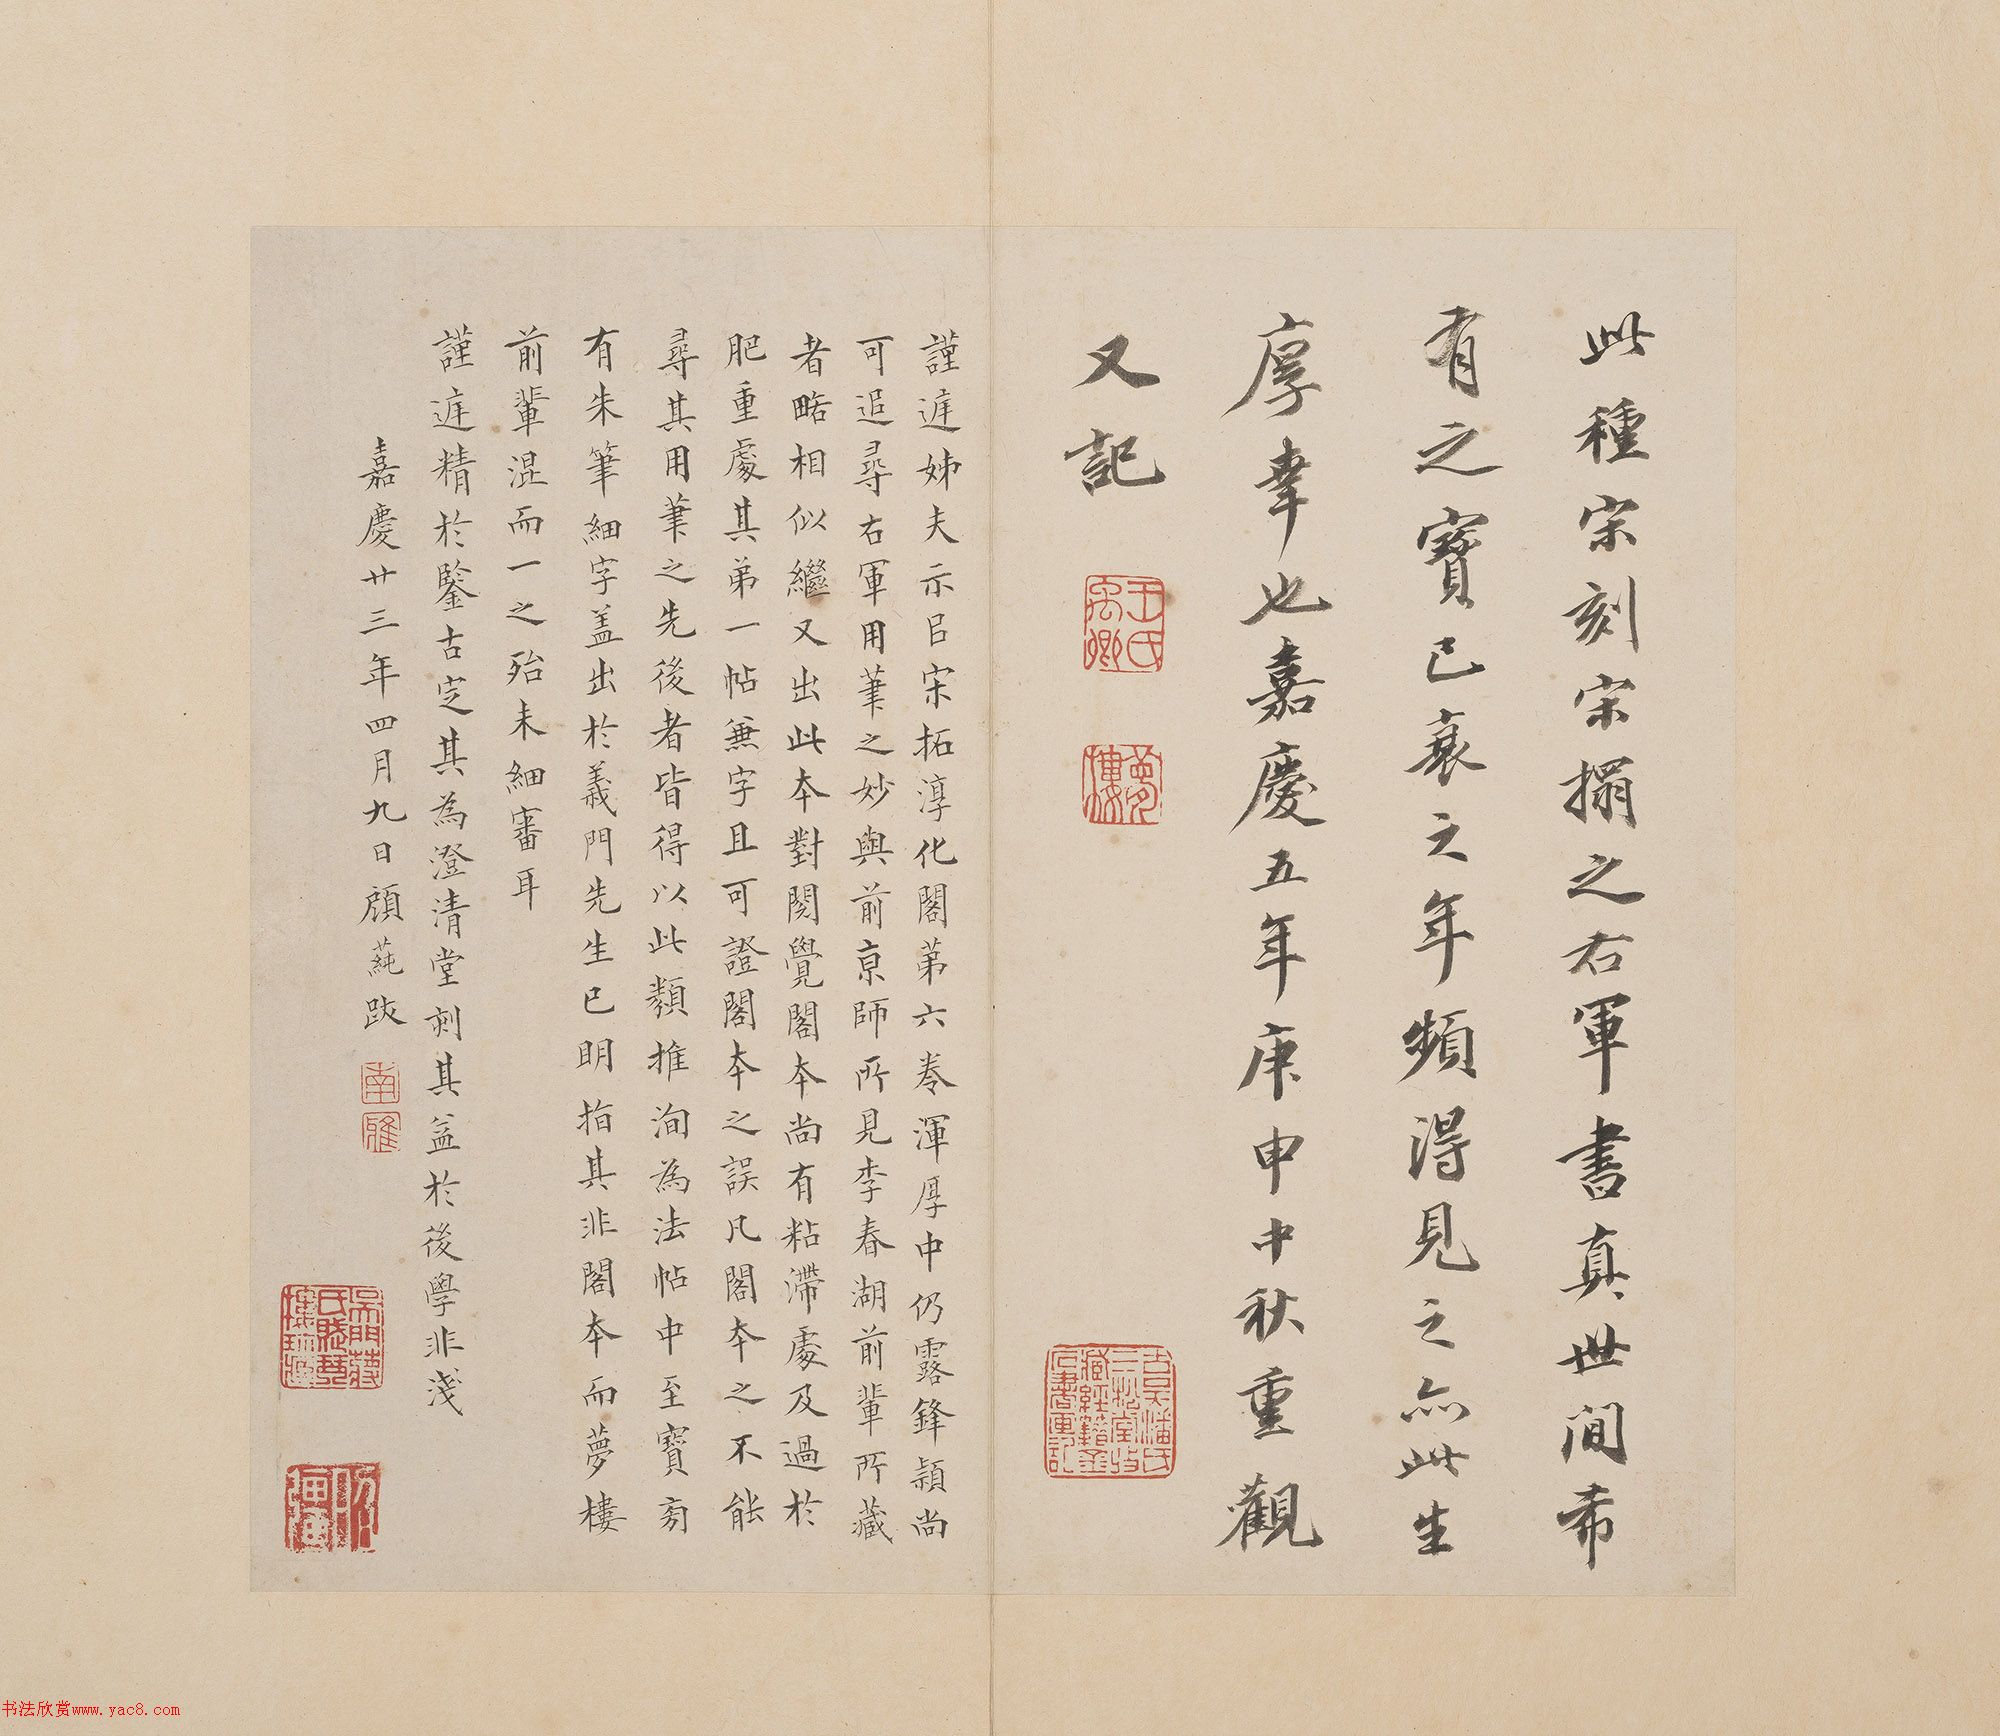 此種宋刻宋搨之右軍書真世間希
有之寶已衰之年頻得見之亦此生
厚幸也嘉慶五年庚申中秋重觀
又記
王氏禹卿
夢樓
謹庭姊夫示㠯宋拓淳化閣第六卷渾厚中仍露鋒穎尚
可追尋右軍用筆之妙與前京師所見李春湖前輩所藏
者略相似繼又出此本對閱覺閣本尚有粘滯處及過於
肥重處其弟一帖無字且可證閣本之誤凡閣本之不能
尋其用筆之先後者皆得以此類推洵為法帖中至寶旁
有朱筆細字蓋出於義門先生已明指其非閣本而夢樓
前輩混而一之殆未細審耳
謹庭精於鑒古定其為澄清堂刻其益於後學非淺
嘉慶廿三年四月九日顧蒓跋
南雅
书法欣赏www.yac8.com